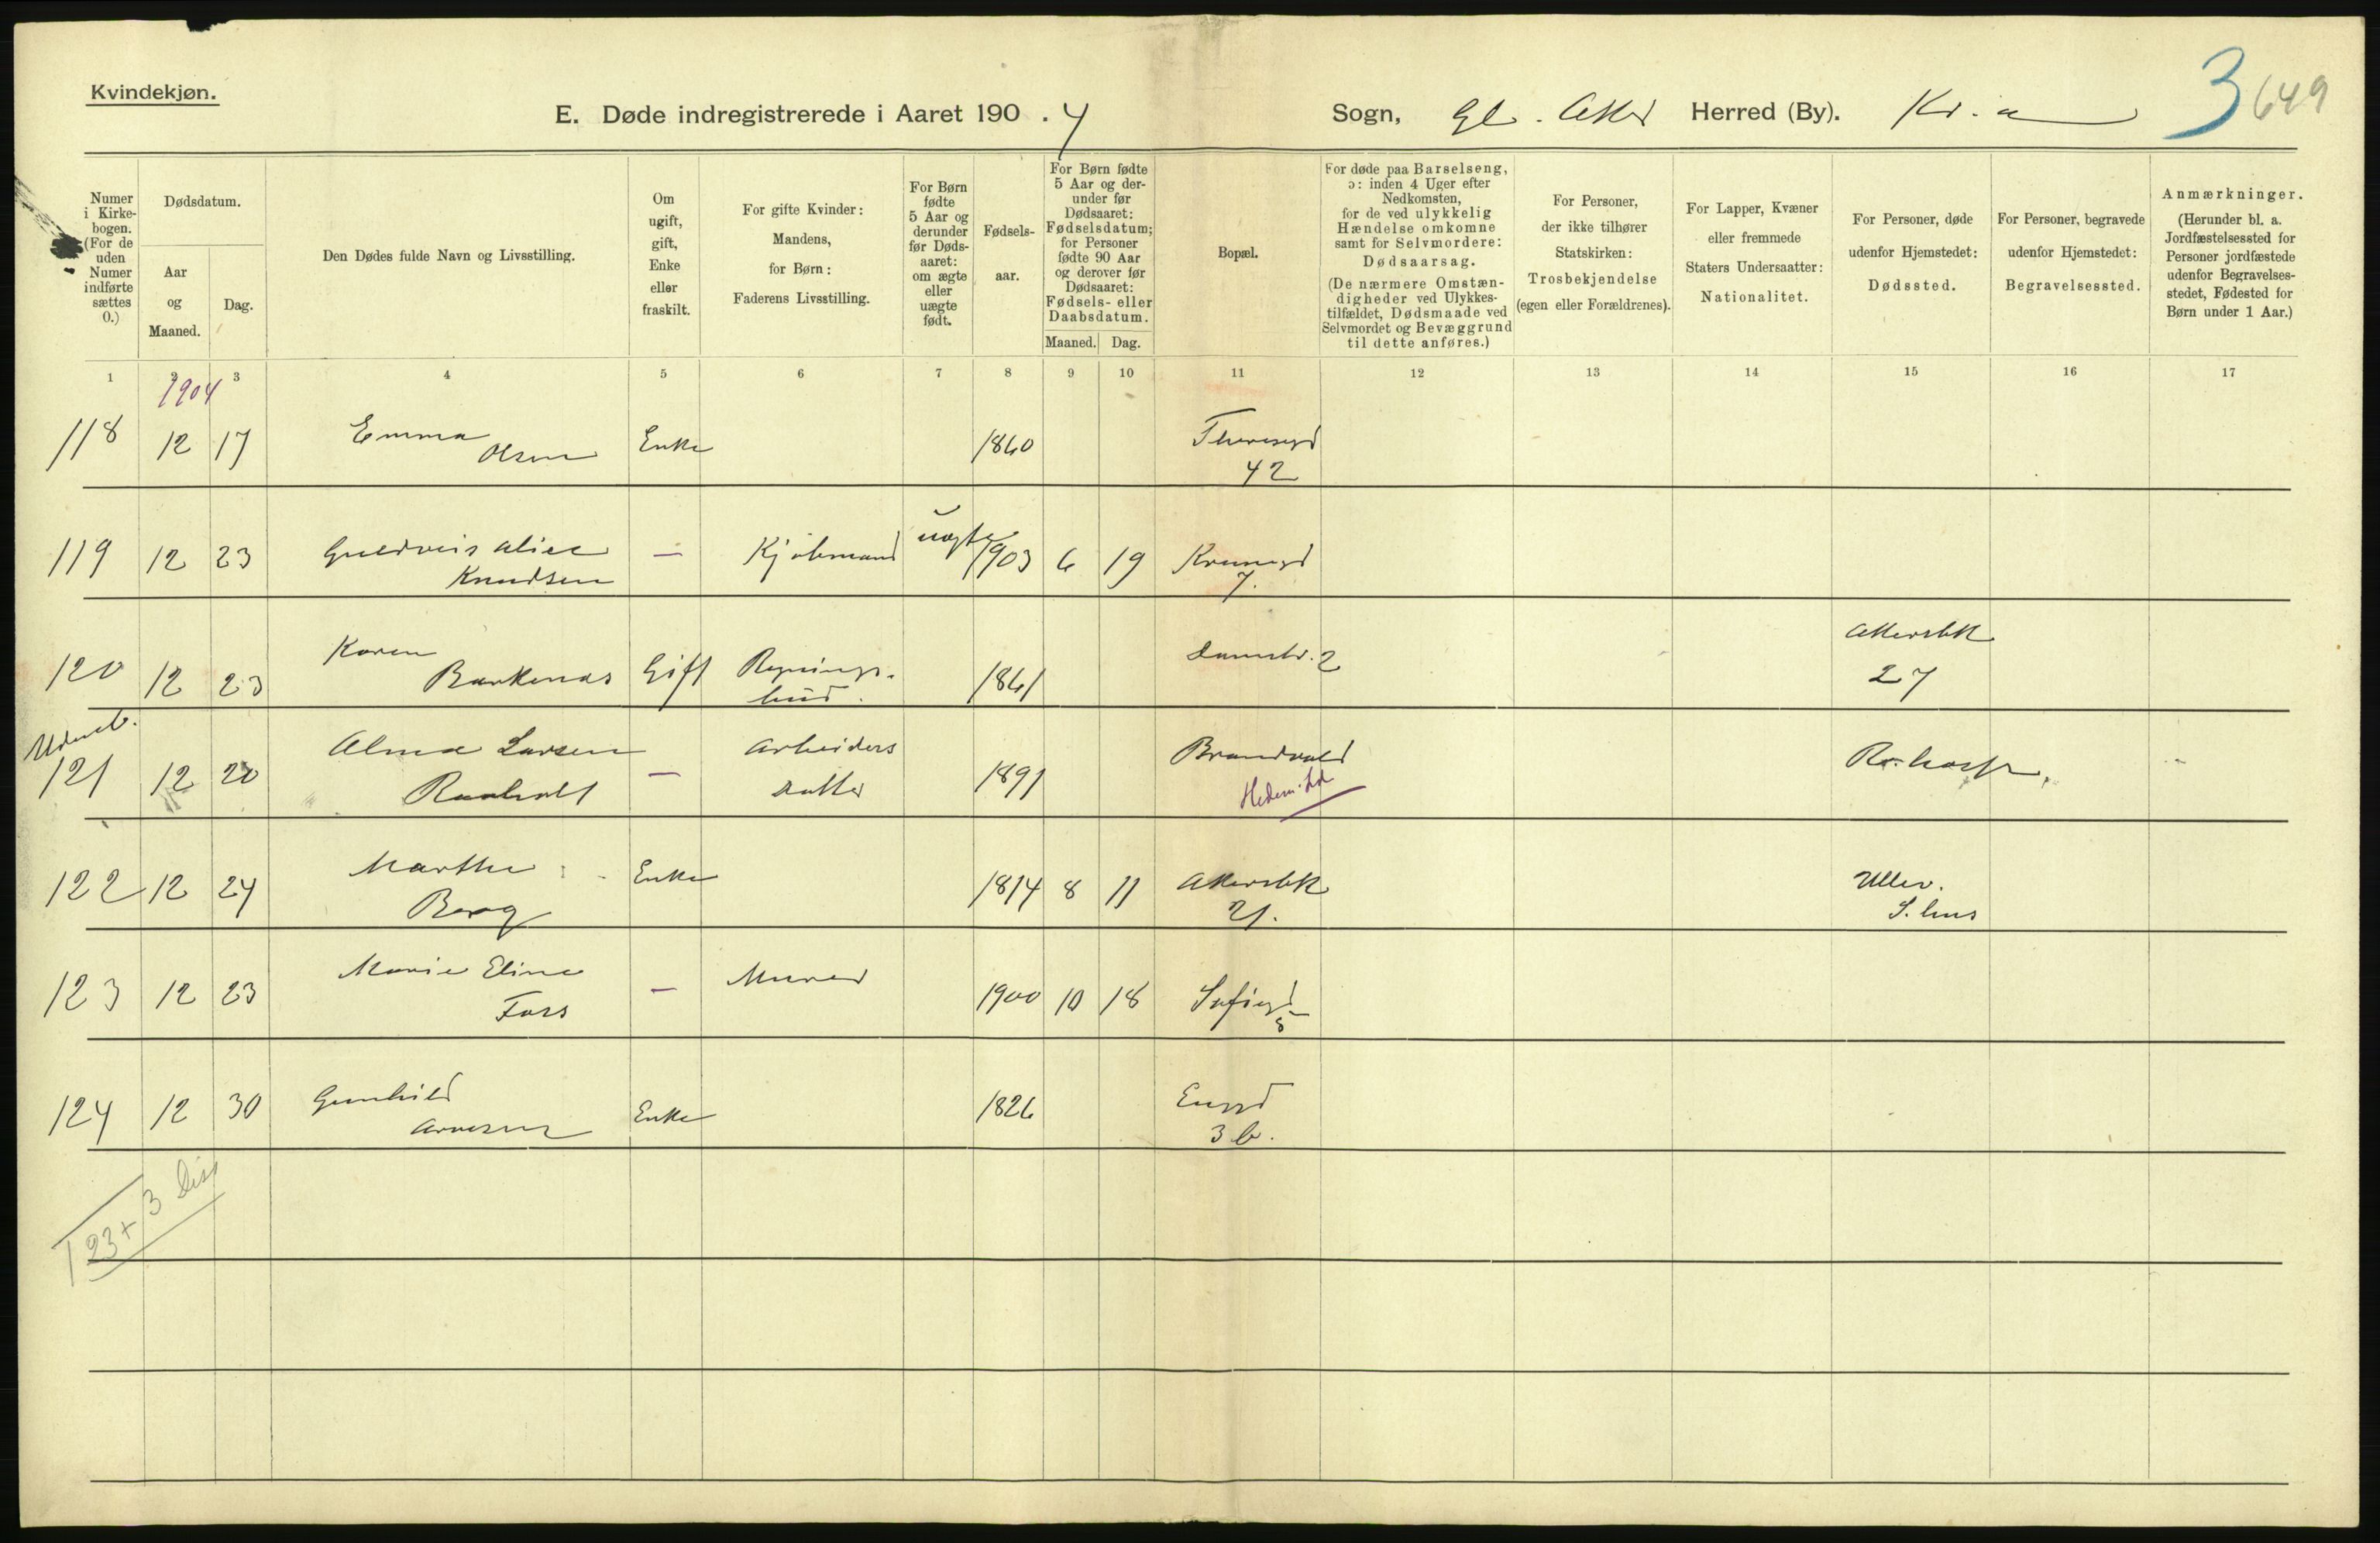 Kvindekjøn.
E. Døde indregistrerede i Aaret 190 . 4 Sogn, Gl. Aker Herred (By). Kr.a 3 649
Numer i Kirke-bogen. (For de uden Numer indførte sættes 0.)
Dødsdatum.
Aar og Maaned.
Dag.
Den Dødes fulde Navn og Livsstilling.
Om ugift, gift, Enke eller fraskilt.
For gifte Kvinder: Mandens, for Børn: Faderens Livsstilling.
For Børn fødte 5 Aar og derunder før Døds-aaret: om ægte eller uægte født.
Fødsels-aar.
For Børn fødte 5 Aar og der-under før Dødsaaret: Fødselsdatum; for Personer fødte 90 Aar og derover før Dødsaaret: Fødsels- eller Daabsdatum.
Maaned. Dag.
Bopæl.
For døde paa Barselseng, ɔ: inden 4 Uger efter Nedkomsten, for de ved ulykkelig Hændelse omkomne samt for Selvmordere: Dødsaarsag.
(De nærmere Omstæn-digheder ved Ulykkes-tilfældet, Dødsmaade ved Selvmordet og Bevæggrund til dette anføres.)
For Personer, der ikke tilhører Statskirken: Trosbekjendelse (egen eller Forældrenes).
For Lapper, Kvæner eller fremmede Staters Undersaatter: Nationalitet.
For Personer, døde udenfor Hjemstedet: Dødssted.
For Personer, begravede udenfor Hjemstedet: Begravelsessted.
Anmærkninger. (Herunder bl. a. Jordfæstelsessted for Personer jordfæstede udenfor Begravelses-stedet, Fødested for Børn under 1 Aar.)
1 2 3 4 5 6 7 8 9 10 11 12 13 14 15 16 17
1904
118 12 17 Emma Olsen Enke 1860 Theresegd 42
119 12 23 Guldveis Alice Knudsen — Kjøbmand uægte 1903 6 19 7.
120 12 23 Karen Gift 1861 2 Akersbk 27
121 12 20 Alma Larsen — Arbeiders datter 1891 Brandvald Hedem. R.hosp.
122 12 24 Marthe Berg Enke 1814 8 11 Akersbk 21. Ullev. S.hus
123 12 23 Marie Eline Foss — Murer 1900 10 18 Sofiegd 8
124 12 30 Gunhild Arnesen Enke 1826 Enggd 3 b.
123 + 3